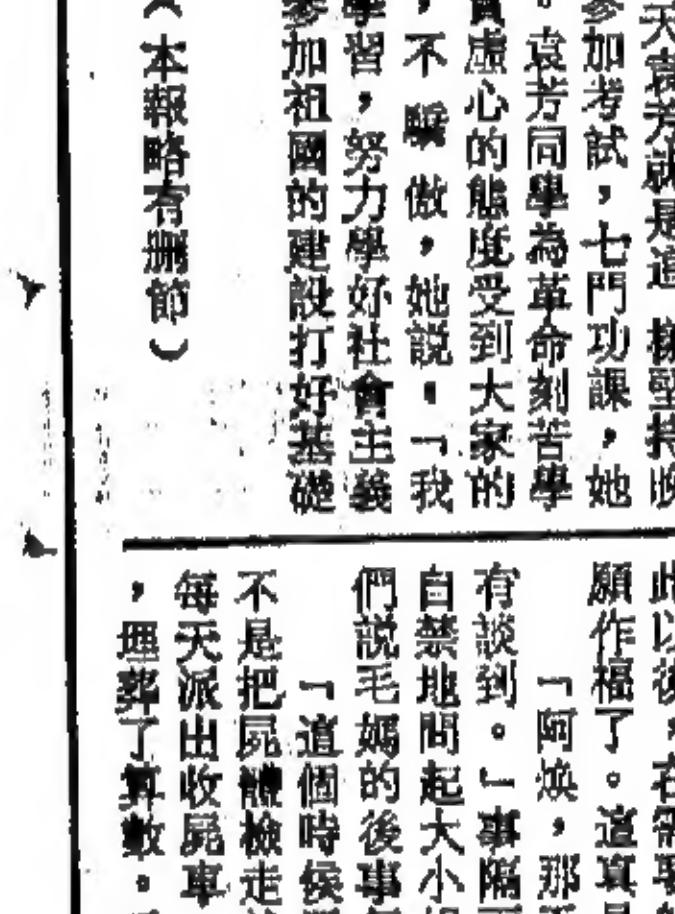 天袁芳就是這樣堅持晚
參加考試，七門功課，她
。袁芳同學為革命刻苦學
虛心的態度受到大家的
，不驕傲，她説：「我
學習，努力學好社會主義
參加祖國的建設打好基礎
（本報略有刪節）
此以後，在需要
願作福了。這真是
「阿煥，那
有談到。」事隔
自禁地問起大小
們説毛媽的後事
「這個時候
不是把屍體檢走
每天派出收屍車
，埋葬了算數。